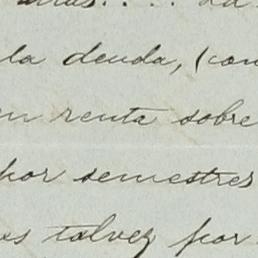 la deuda, (con
en renta sobre
por semestres
os talvez por